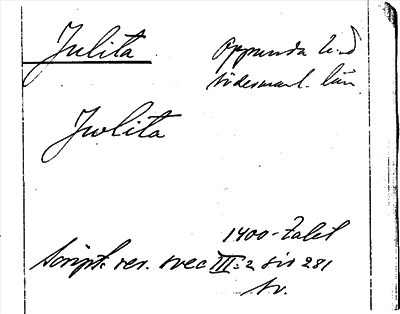 Julita Oppunda h-d
södermanl. län
Jwlita
1400-talet
Script. rer. svec III:2 sid 281
Sv.